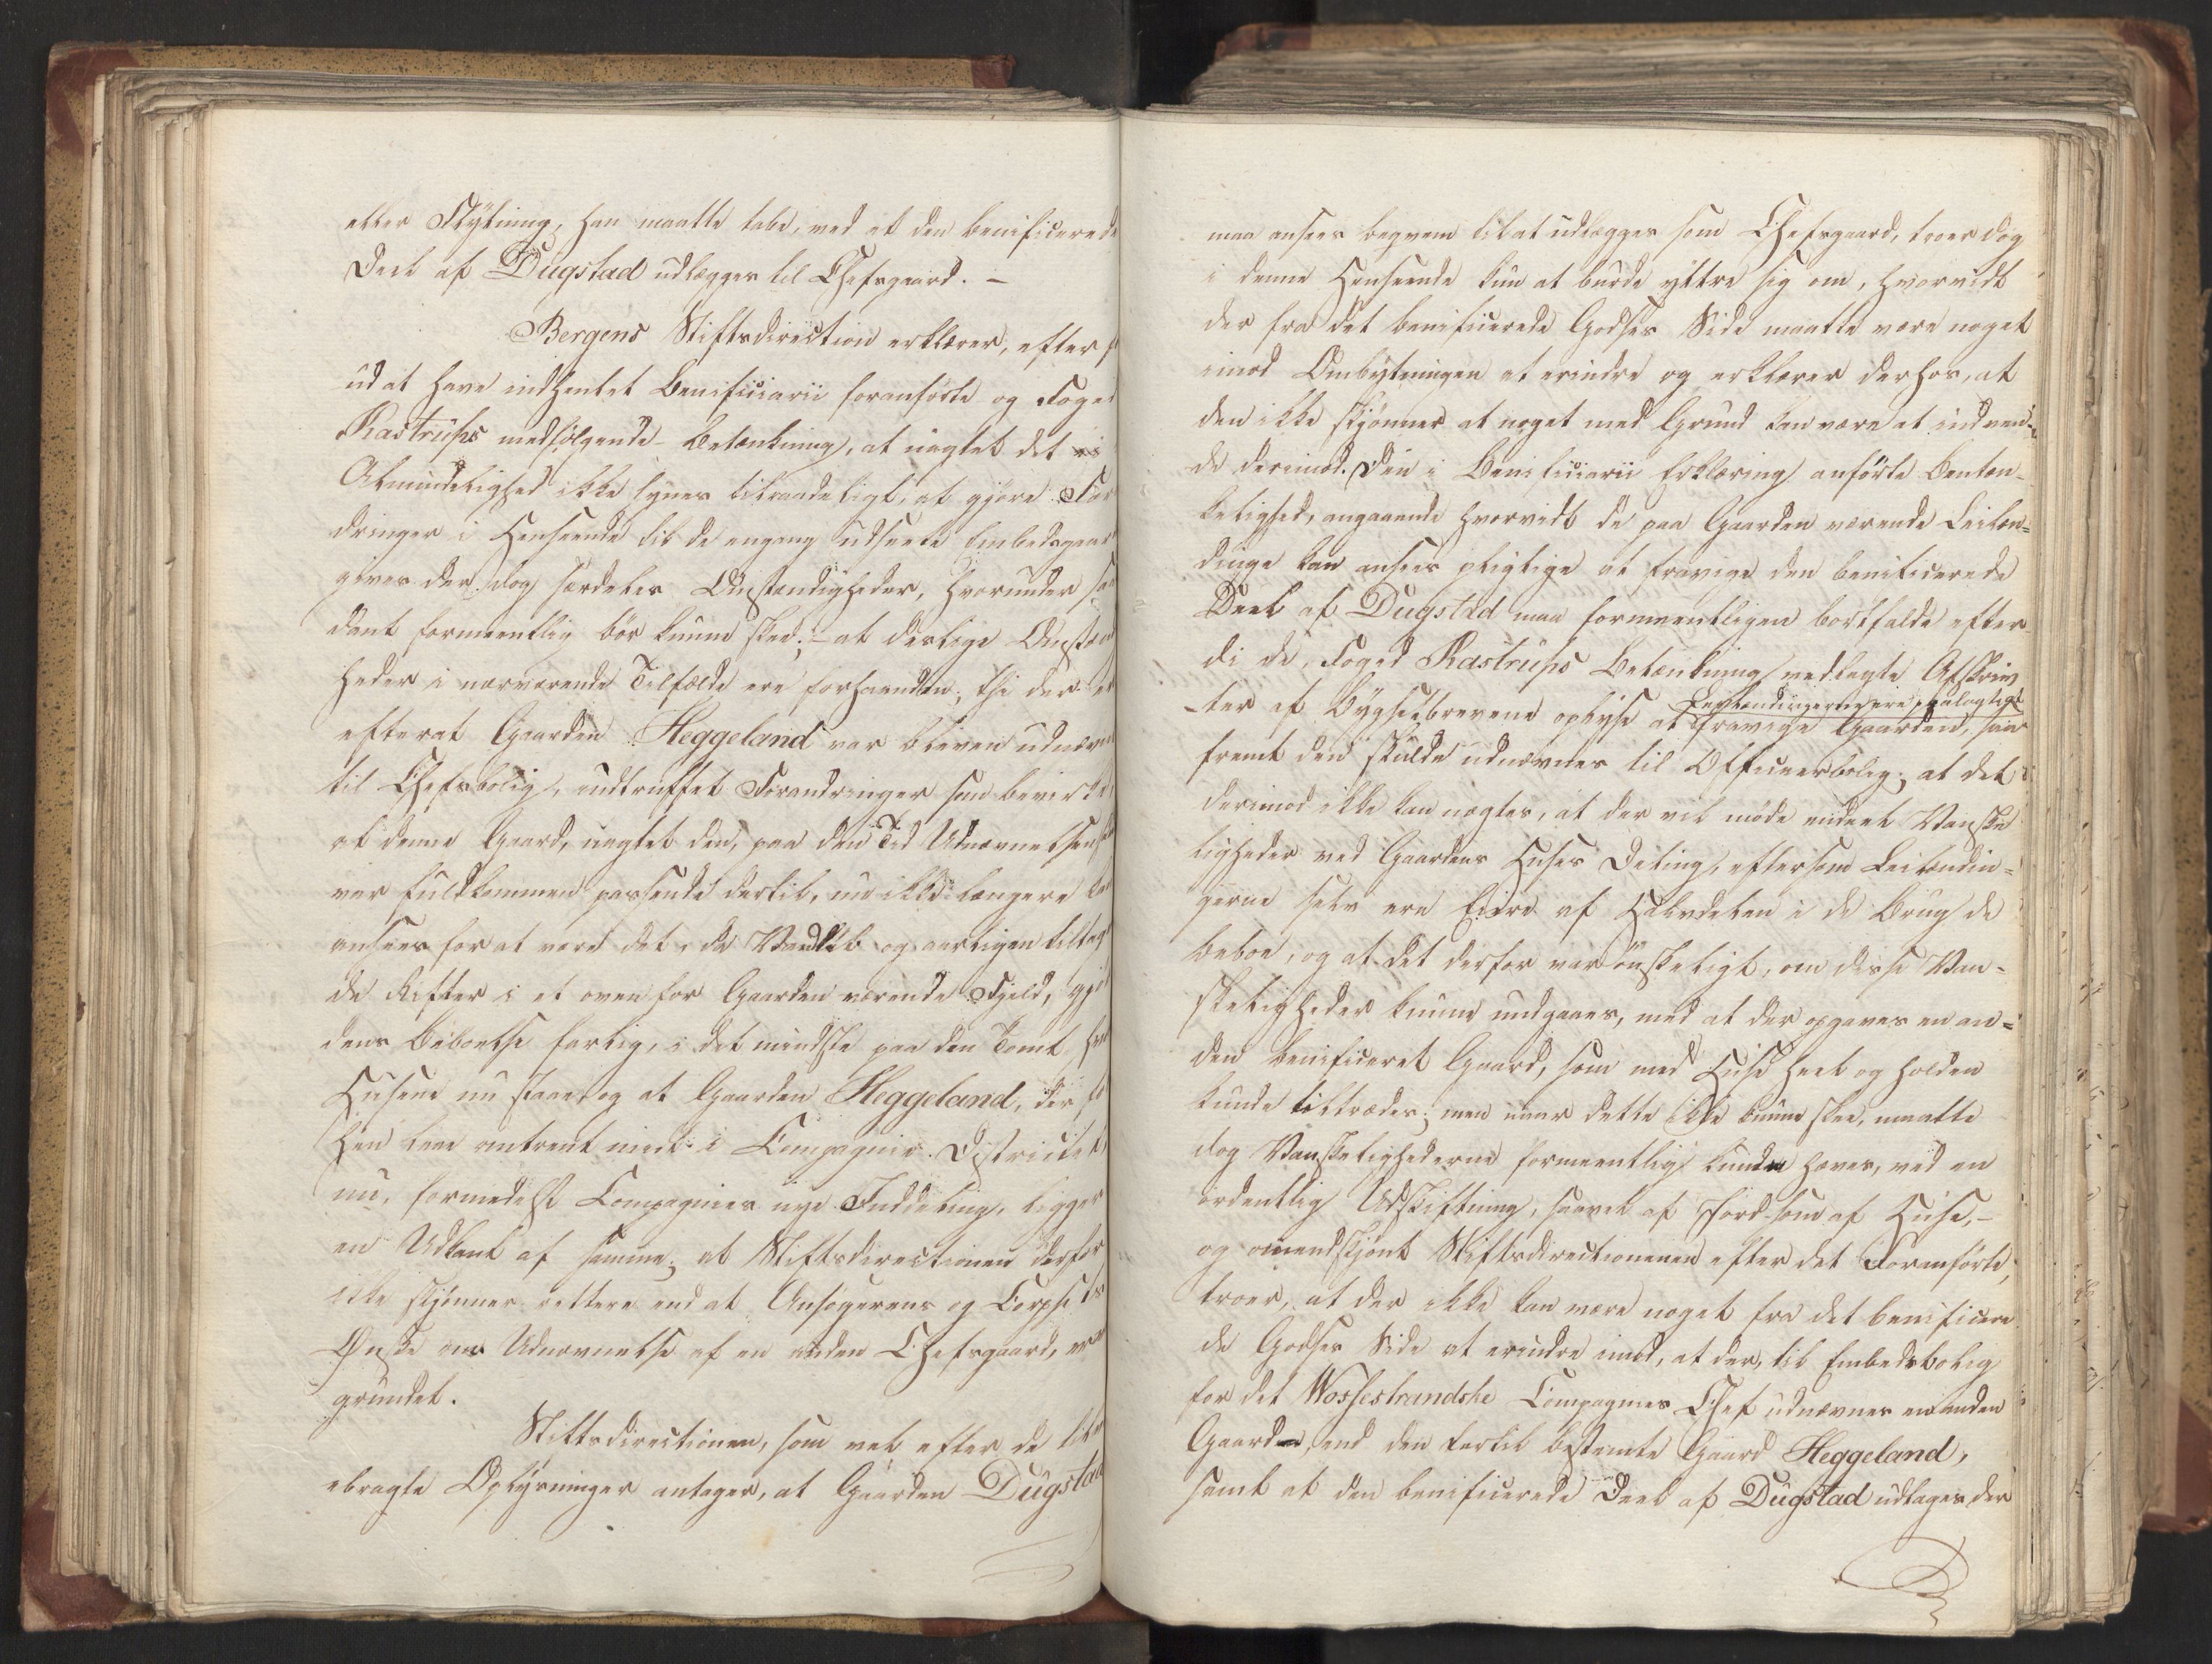 eller Flytning, han maatte tabe, ved at den benificerede
Deel af Dugstad udlægges til Chefsgaard. –
Bergens Stiftsdirection erklærer, efter f
ud at have indhentet Benificiarii foranførte og Foged
Rastrups medfølgende Betænkning, at uagtet det
Almindelighed ikke synes tilraadeligt, at gjøre For
dringer i Henseende til de engang udseete Embedsgaar
gives der dog særdeles Omstændigheder, hvorunder saa
dant formeentlig bør kunne skee; – at deslige Omstæn
heder i nærværende Tilfælde ere forhaanden; thi der er
efterat Gaarden Heggeland var bleven udnævnt
til Chefsbolig, indtruffet Forandringer som bevirke
at denne Gaard, uagtet den, paa den Tid Udnævnelsen
var fuldkommen passende dertil, nu ikke længere kan
ansees for at være det, da Vandløb og aarligen tiltag
de Rifter i et oven for Gaarden værende Fjeld, gjør
dens Beboelse farlig, i det mindste paa den Tomt, hvor
Husene nu staae og at Gaarden Heggeland, der fø
hen laae omtrent midt i Compagnie-Districtet,
nu, formedelst Compagniets nye Inddeling, ligger
en Udkant af samme; at Stiftsdirectionen derfor
ikke skjønner rettere end at Ansøgerens og Corpsets
Ønske om Udnævnelse af en anden Chefsgaard, er
grundet.
Stiftsdirectionen, som vel efter de tilve
ebragte Oplysninger antager, at Gaarden Dugstad
maa ansees beqvem til at udlægges som Chefsgaard, troer dog
i denne Henseende kun at burde yttre sig om, hvorvidt
der fra det benificerede Godses Side maatte være noget
imod Ombytningen at erindre og erklærer derhos, at
den ikke skjønner at noget med Grund kan være at indven-
de derimod. Den i Benificiarii Erklæring anførte Beten-
kelighed, angaaende hvorvidt de paa Gaarden værende Leilæn-
dinge kan ansees pligtige at fravige den benificerede
Deel af Dugstad maa formeentligen bortfalde efter
di de, Foged Rastrups Betænkning vedlagte Afskriv
Leilændingerne ere pålagligt
-ter af Bygselbrevene oplyse at fravige Gaarden, saa
fremt den skulde udnævnes til Officeerbolig; at det
derimod ikke kan nægtes, at der vil møde endeel Vanske
ligheder ved Gaardens Huses Deling, eftersom Leilændin-
gerne selv ere Eiere af Halvdelen i de Brug de
beboe, og at det derfor var ønskeligt, om disse Van-
skeligheder kunne undgaaes, med at der opgaves en an-
den benificeret Gaard, som med Huse heel og holden
kunde tiltrædes; men naar dette ikke kunne skee, maatte
dog Vanskelighederne formeentlig kunde hæves, ved en
ordentlig Udskiftning, saavel af Jord som af Huse, –
og omendskjønt Stiftsdirectionenen efter det Foranførte,
troer, at der ikke kan være noget fra det benificere
de Godses Side at erindre imod, at der, til Embedsbolig
for det Wossestrandske Compagnies Chef udnævnes en anden
Gaard, end den dertil bestemte Gaard Heggeland,
samt at den benificerede Deel af Dugstad udlages der